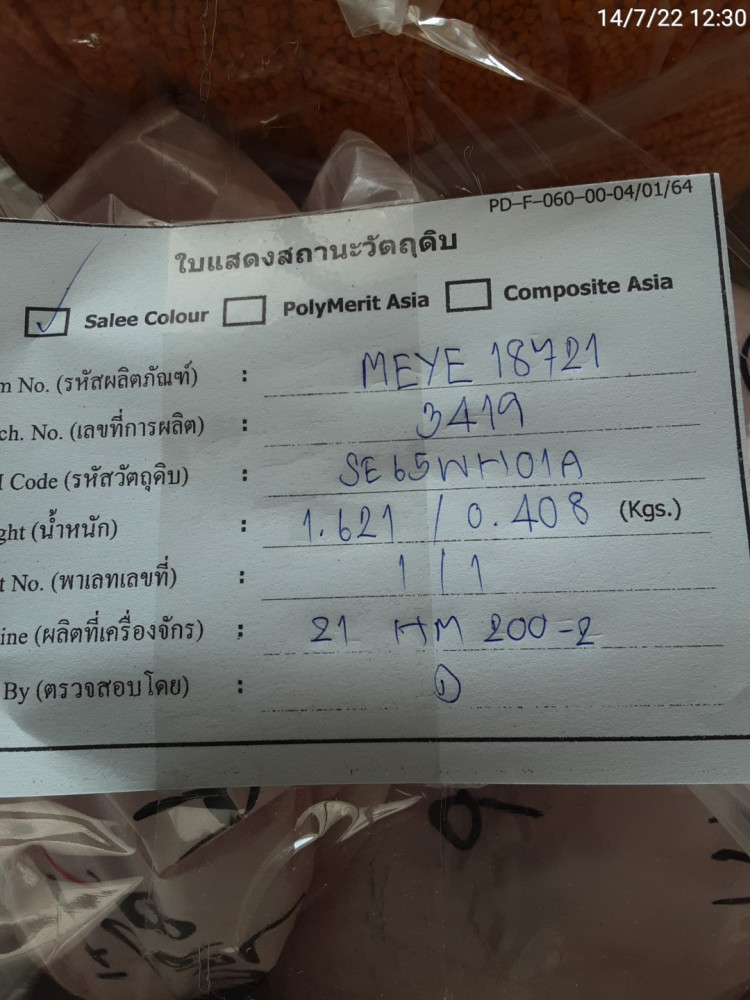 14/7/22 12:30
PD-F-060-00-04/01/64
ใบแสดงสถานะวัตถุดิบ
Salee Colour PolyMerit Asia Composite Asia
m No. (รหัสผลิตภัณฑ์) : MEYE 18721
ch. No. (เลขที่การผลิต) : 3419
Code (รหัสวัตถุดิบ) : SE65WH01A
ght (น้ำหนัก) : 1.621 / 0.408 (Kgs.)
t No. (พาเลทเลขที่) : 1 / 1
ine (ผลิตที่เครื่องจักร) : 21 HM 200-2
By (ตรวจสอบโดย) :